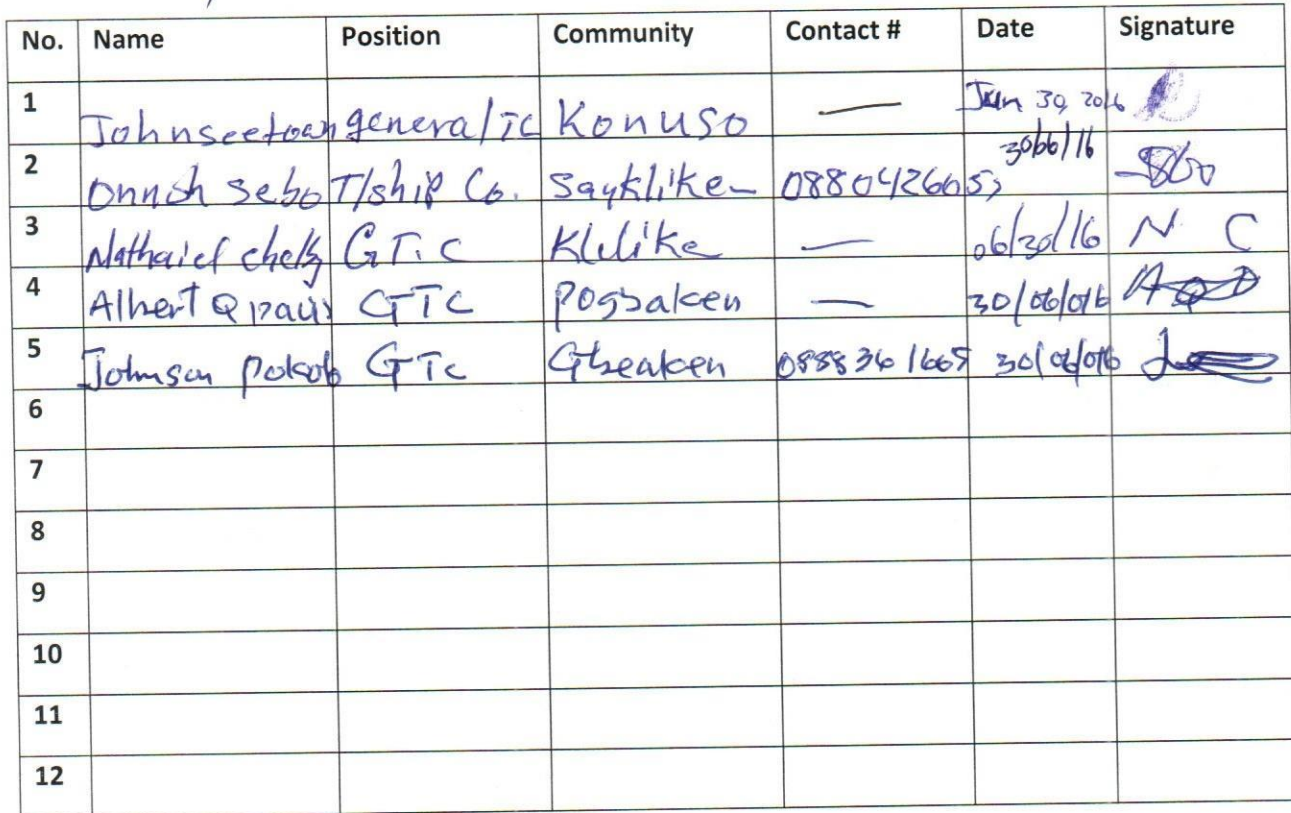 No. Name Position Community Contact # Date Signature
1 Johnseetoan general TC Konuso — Jun 30, 2016
2 Onnoh Sebo T/ship Co. Sayklike 30/06/16
3 Nathaiel G.T.C Klilike — 06/30/16 N C
4 Albert Q GTC — 30/06/016
5 Johnson GTC Gbeaken 30/06/016
6
7
8
9
10
11
12